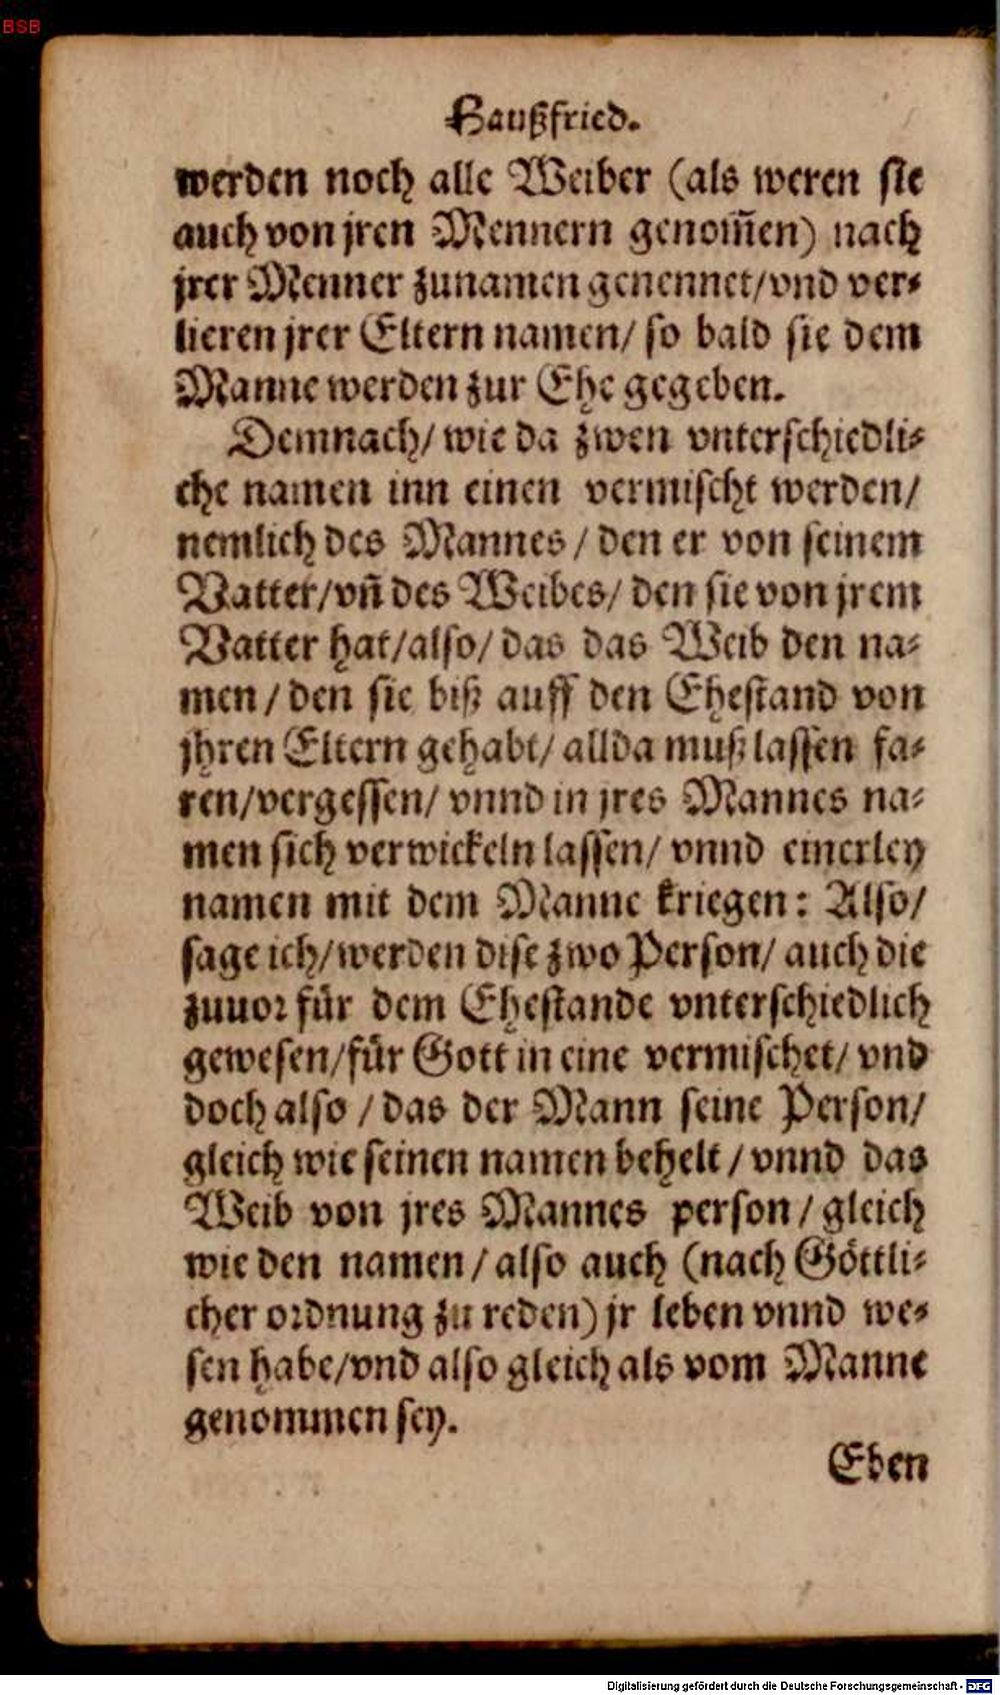 BSB
Haußfried.
werden noch alle Weiber (als weren sie
auch von jren Mennern genom̃en) nach
jrer Menner zunamen genennet/vnd ver-
lieren jrer Eltern namen/ so bald sie dem
Manne werden zur Ehe gegeben.
Demnach/ wie da zwen vnterschiedli-
che namen inn einen vermischt werden/
nemlich des Mannes / den er von seinem
Vatter/vñ des Weibes/ den sie von jrem
Vatter hat/also/ das das Weib den na-
men / den sie biß auff den Ehestand von
jhren Eltern gehabt/ allda muß lassen fa-
ren/vergessen/ vnnd in jres Mannes na-
men sich verwickeln lassen/ vnnd einerley
namen mit dem Manne kriegen: Also/
sage ich/werden dise zwo Person/ auch die
zuuor für dem Ehestande vnterschiedlich
gewesen/für Gott in eine vermischet/ vnd
doch also / das der Mann seine Person/
gleich wie seinen namen behelt / vnnd das
Weib von jres Mannes person / gleich
wie den namen / also auch (nach Göttli-
cher ordnung zu reden) jr leben vnnd we-
sen habe/vnd also gleich als vom Manne
genommen sey.
Eben
Digitalisierung gefördert durch die Deutsche Forschungsgemeinschaft - DFG